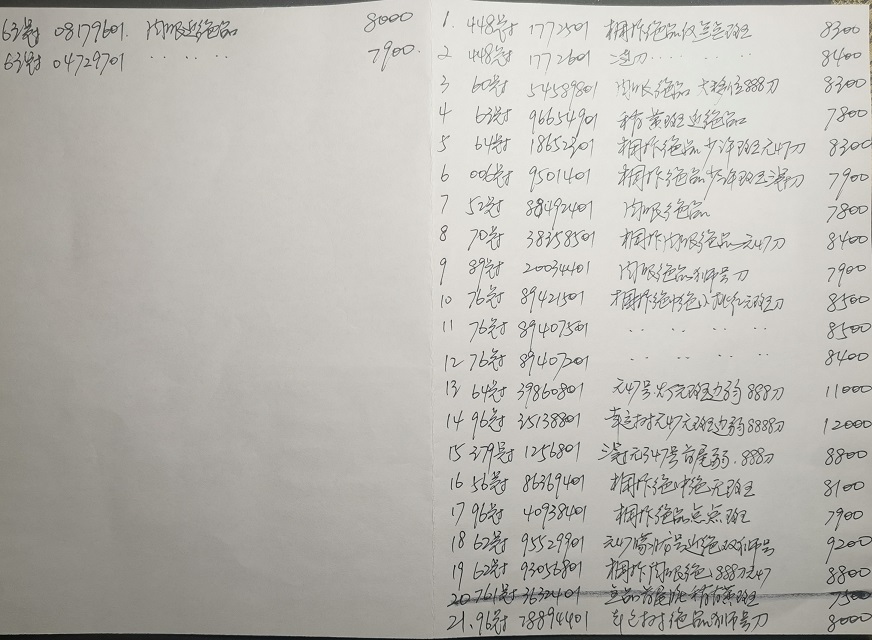 63号 08179601. 肉眼近绝品 8000
63号 04729701 ‥ ‥ ‥ 7900.
1. 448号 1772501 相拆绝品仅 斑 8300
2 448号 1772601 连刀 ‥ ‥ ‥ 8400
3 60号 54589801 肉眼绝品 888刀 8300
4 63号 96654901 稍黄斑近绝品 7800
5 64号 18652301 相拆绝品少许斑无47刀 8300
6 006号 9501401 相拆绝品少许斑 刀 7900
7 52号 88492401 肉眼绝品 7800
8 70号 38358501 相拆肉眼绝品无47刀 8400
9 89号 20034401 肉眼绝品狮号刀 7900
10 76号 89421501 相拆绝中绝 无斑刀 8500
11 76号 89407501 ‥ ‥ ‥ ‥ 8500
12 76号 89407201 ‥ ‥ ‥ ‥ 8400
13 64号 39860801 无47号 无斑边弱888刀 11000
14 96号 35138801 无47无斑边弱8888刀 12000
15 379号 1256801 无347号首尾弱.888刀 8800
16 56号 86369401 相拆绝中绝无斑 8100
17 96号 40938401 相拆绝品点点斑 7900
18 62号 95529901 无47 号近绝双狮号 9200
19 62号 93056801 相拆肉眼绝888刀无47 8800
20 761号 3632401 全品首尾 稍黄斑 7500
21. 96号 78894401 绝品狮号刀 8000